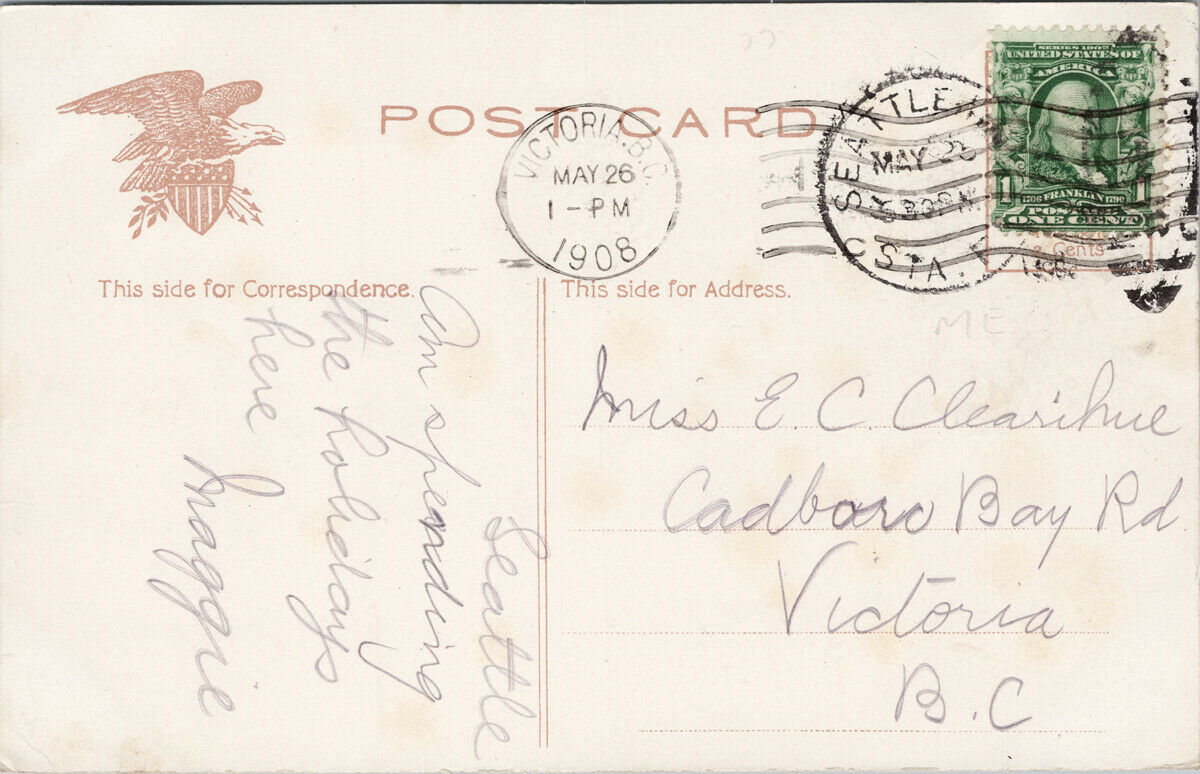 POST CARD
VICTORIA, B.C.
MAY 26
1 - PM
1908
SEATTLE
MAY
STA.
SERIES 1902
UNITED STATES OF
AMERICA
1 1
1706 FRANKLIN 1790
POSTAGE
ONE CENT
2 Cents
This side for Correspondence.
This side for Address.
ME
Seattle
Am spending
the holidays
here
Maggie
Miss E. C. Clearihue
Cadboro Bay Rd
Victoria
B.C